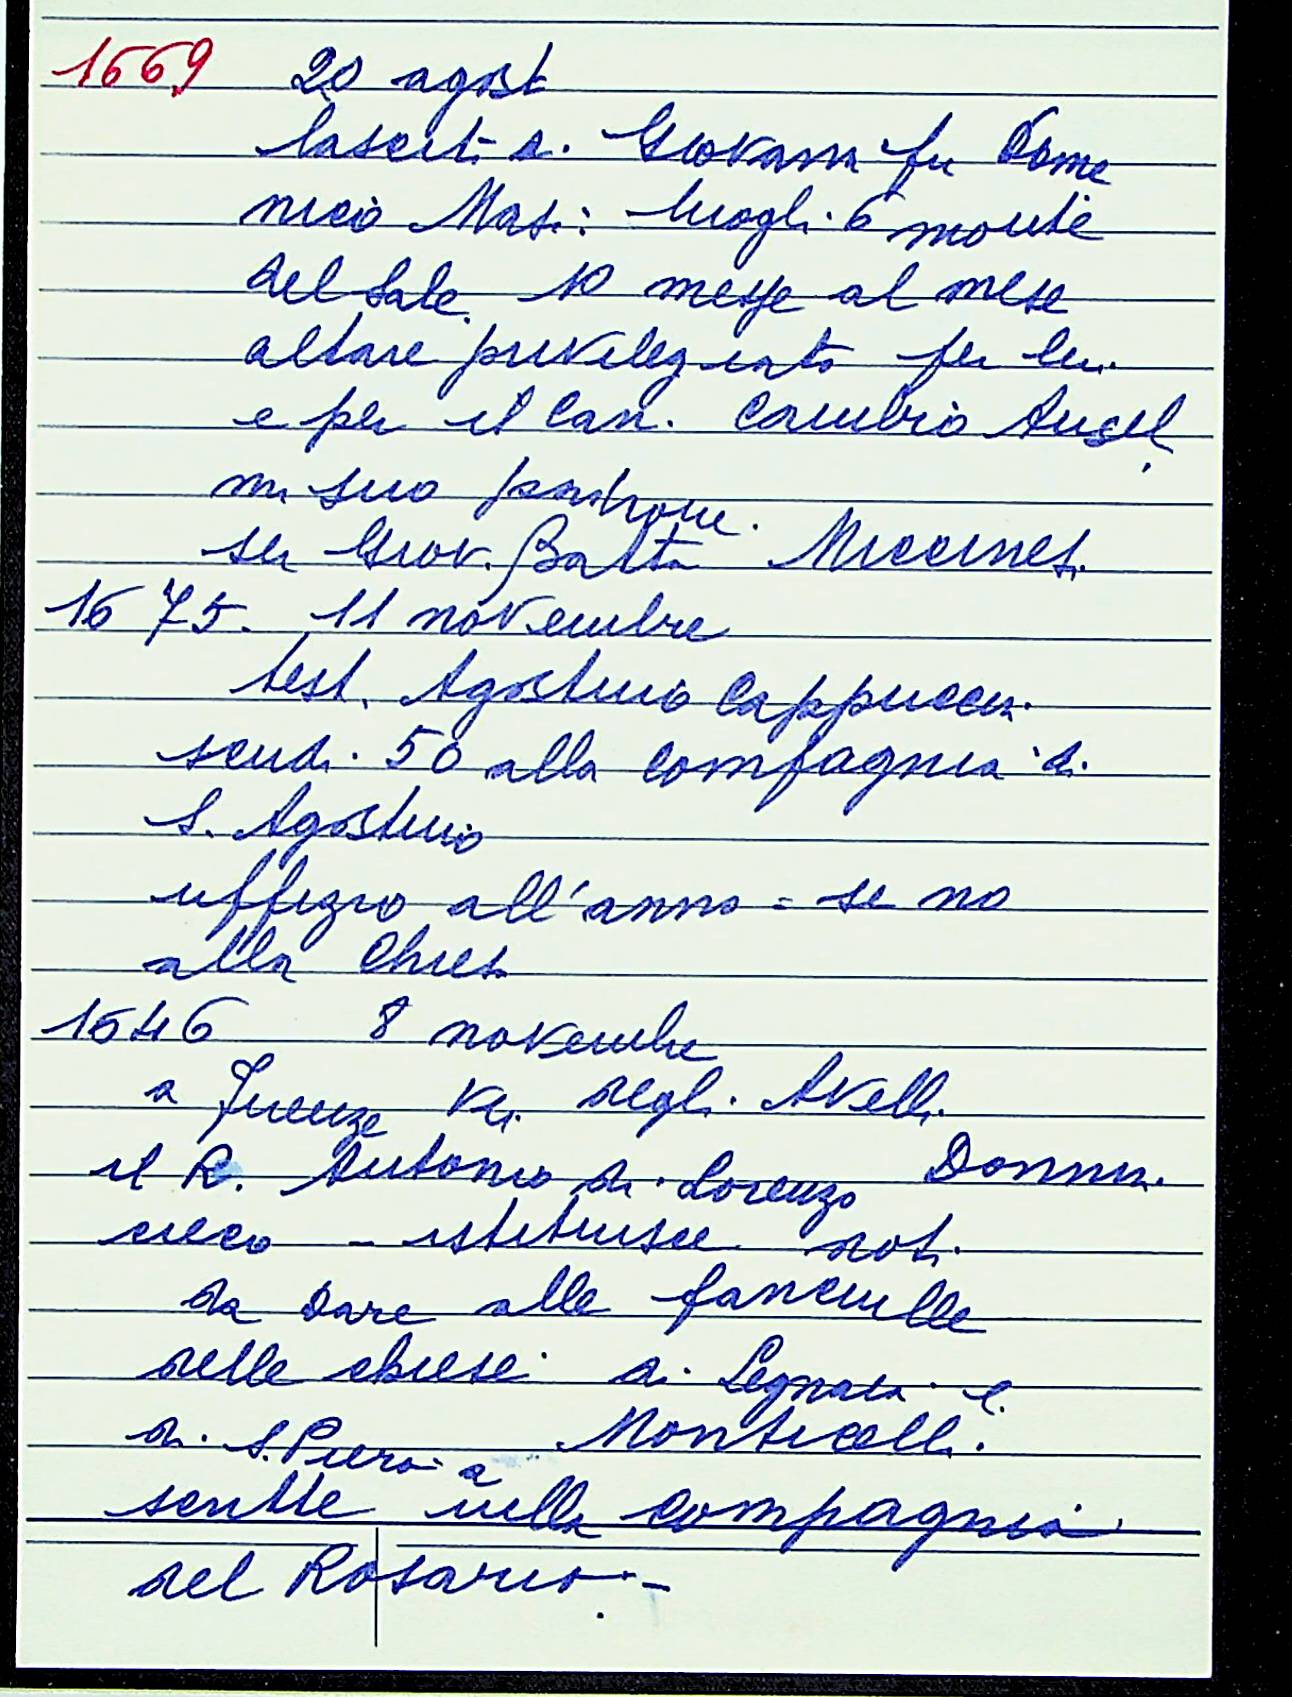 1669 20 agost
lascit. di Giovanni fu Dome
nico Masi: luoghi 6 monte
del Sale. 10 messe al mese
altare privilegiato per lui
e per il Can. Cambio Ansel
mi suo padrone.
ser Giov. Batta
1675. 11 novembre
test. Agostino Cappucci
scudi 50 alla compagnia di
S. Agostino
uffizio all'anno = se no
alla Chiesa
1646 8 novembre
a Firenze via degli Avelli
il R. Antonio di Lorenzo Donnin.
cieco - istituisce doti
da dare alle fanciulle
delle chiese di Legnaia e
di S. Piero a Monticelli
scritte nella compagnia
del Rosario. -